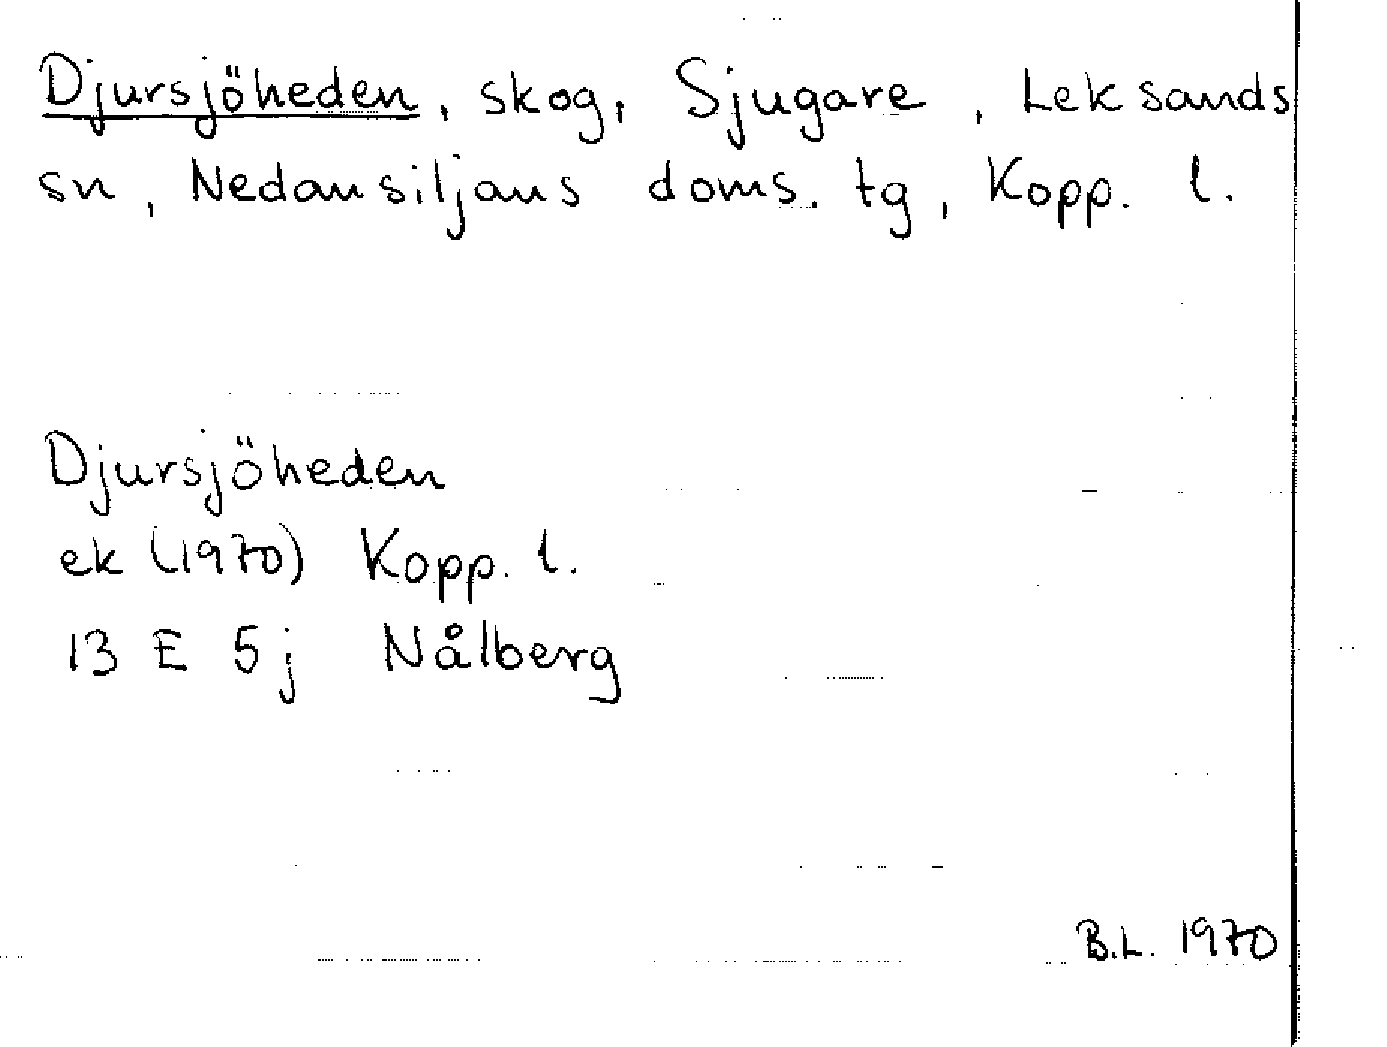 Djursjöheden, skog, Sjugare, Leksands
sn, Nedansiljans doms. tg, Kopp. l.
Djursjöheden
ek (1970) Kopp. l.
13 E 5j Nålberg
B.L. 1970